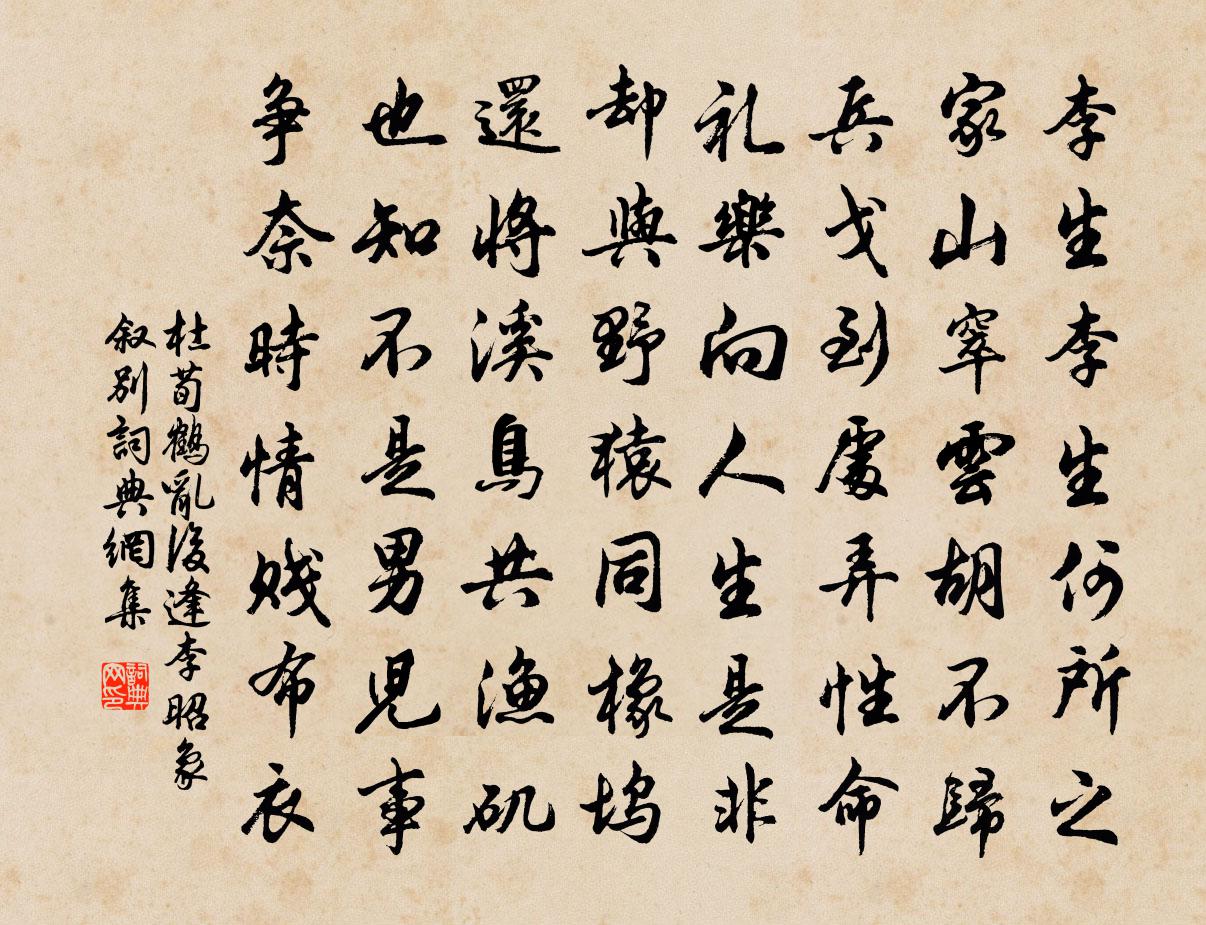 李生李生何所之
家山窣雲胡不歸
兵戈到處弄性命
礼樂向人生是非
却與野猿同橡塢
還將溪鳥共漁矶
也知不是男兒事
争奈時情賤布衣
杜荀鶴亂後逢李昭象
叙別詞典網集
詞典
网印